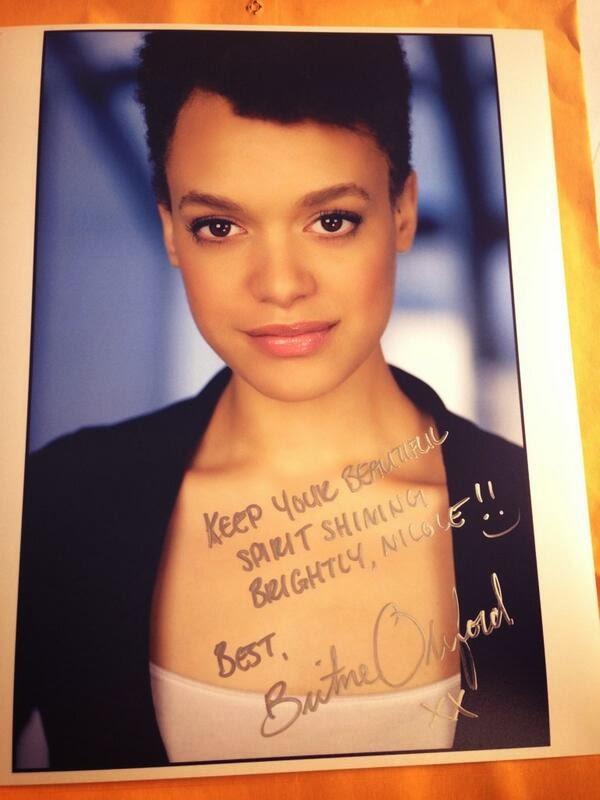 KEEP YOUR BEAUTIFUL
SPIRIT SHINING
BRIGHTLY, NICOLE!!
BEST,
Britne Oldford
XX